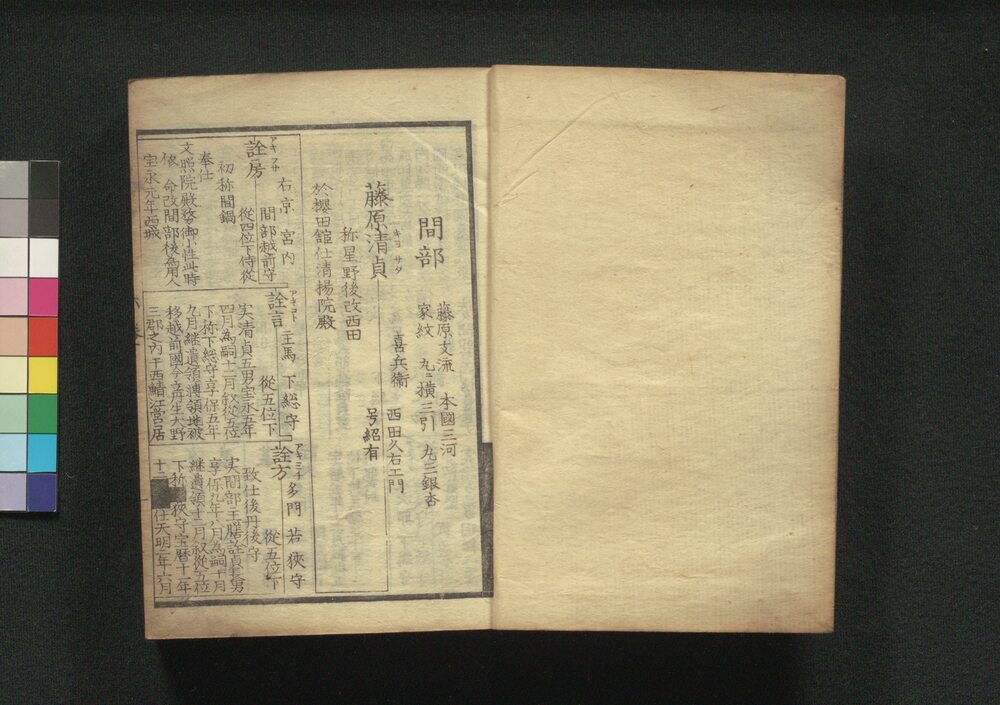 間部
藤原支流 本國三河
家紋 丸ニ横三引 丸三銀杏
藤原清貞
キヨサダ
喜兵衛 西田久右エ門
号紹有
称星野後改西田
於櫻田舘仕清揚院殿
詮房
アキフサ
右京 宮内
間部越前守
從四位下侍從
初称間鍋
奉仕
文照院殿務御小性此時
依 命改間部後為用人
宝永元年西城
詮言
アキトキ
主馬 下総守
從五位下
実清貞五男宝永五年
四月為嗣十二月叙從五位
下称下総守享保五年
九月継遺領轉領地被
移越前國今立丹生大野
三郡之内于西鯖江営居
詮方
アキミチ
多門 若狹守
從五位下
致仕後丹後守
実間部主膳詮貞長男
享保九年八月為嗣十月
継遺領十二月叙從五位
下称 狹守宝暦十一年
十二 任天明二年六月